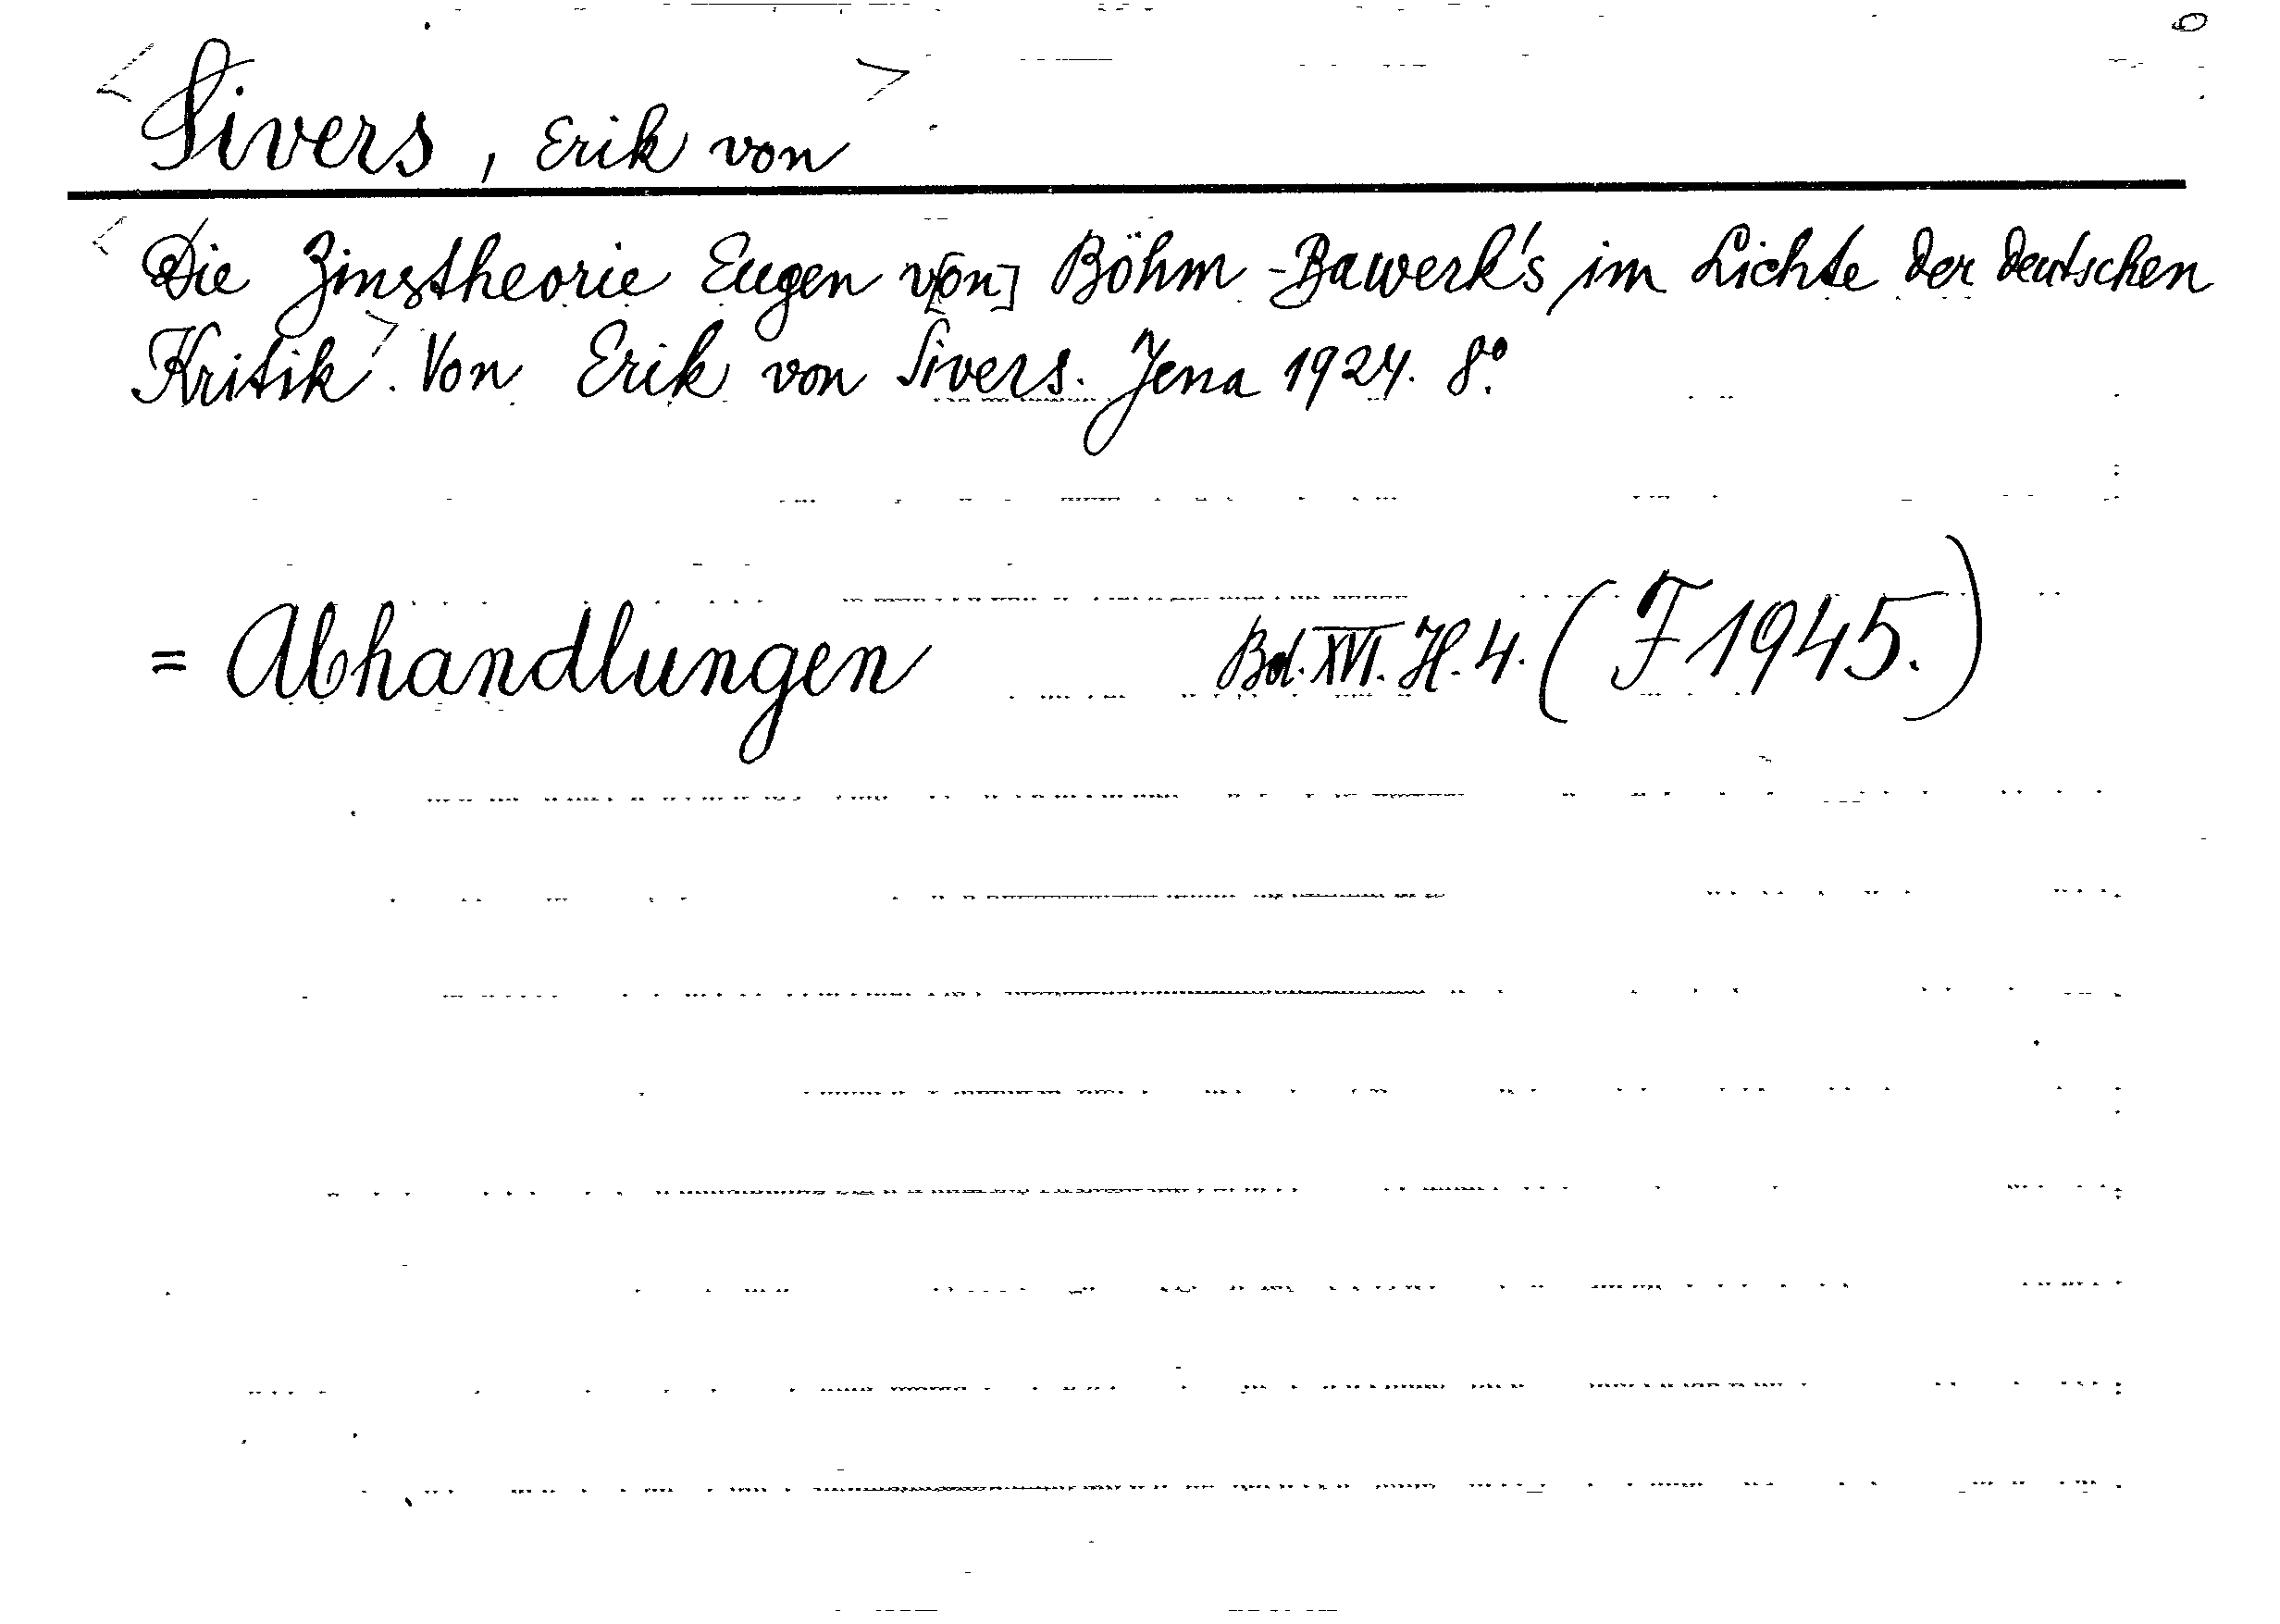 <Sivers, Erik von>
<Die Zinstheorie Eugen v[on] Böhm-Bawerk's im Lichte der deutschen
Kritik>. Von Erik von Sivers. Jena 1924. 8°.
= Abhandlungen Bd. XVI. H. 4. (F 1945.)